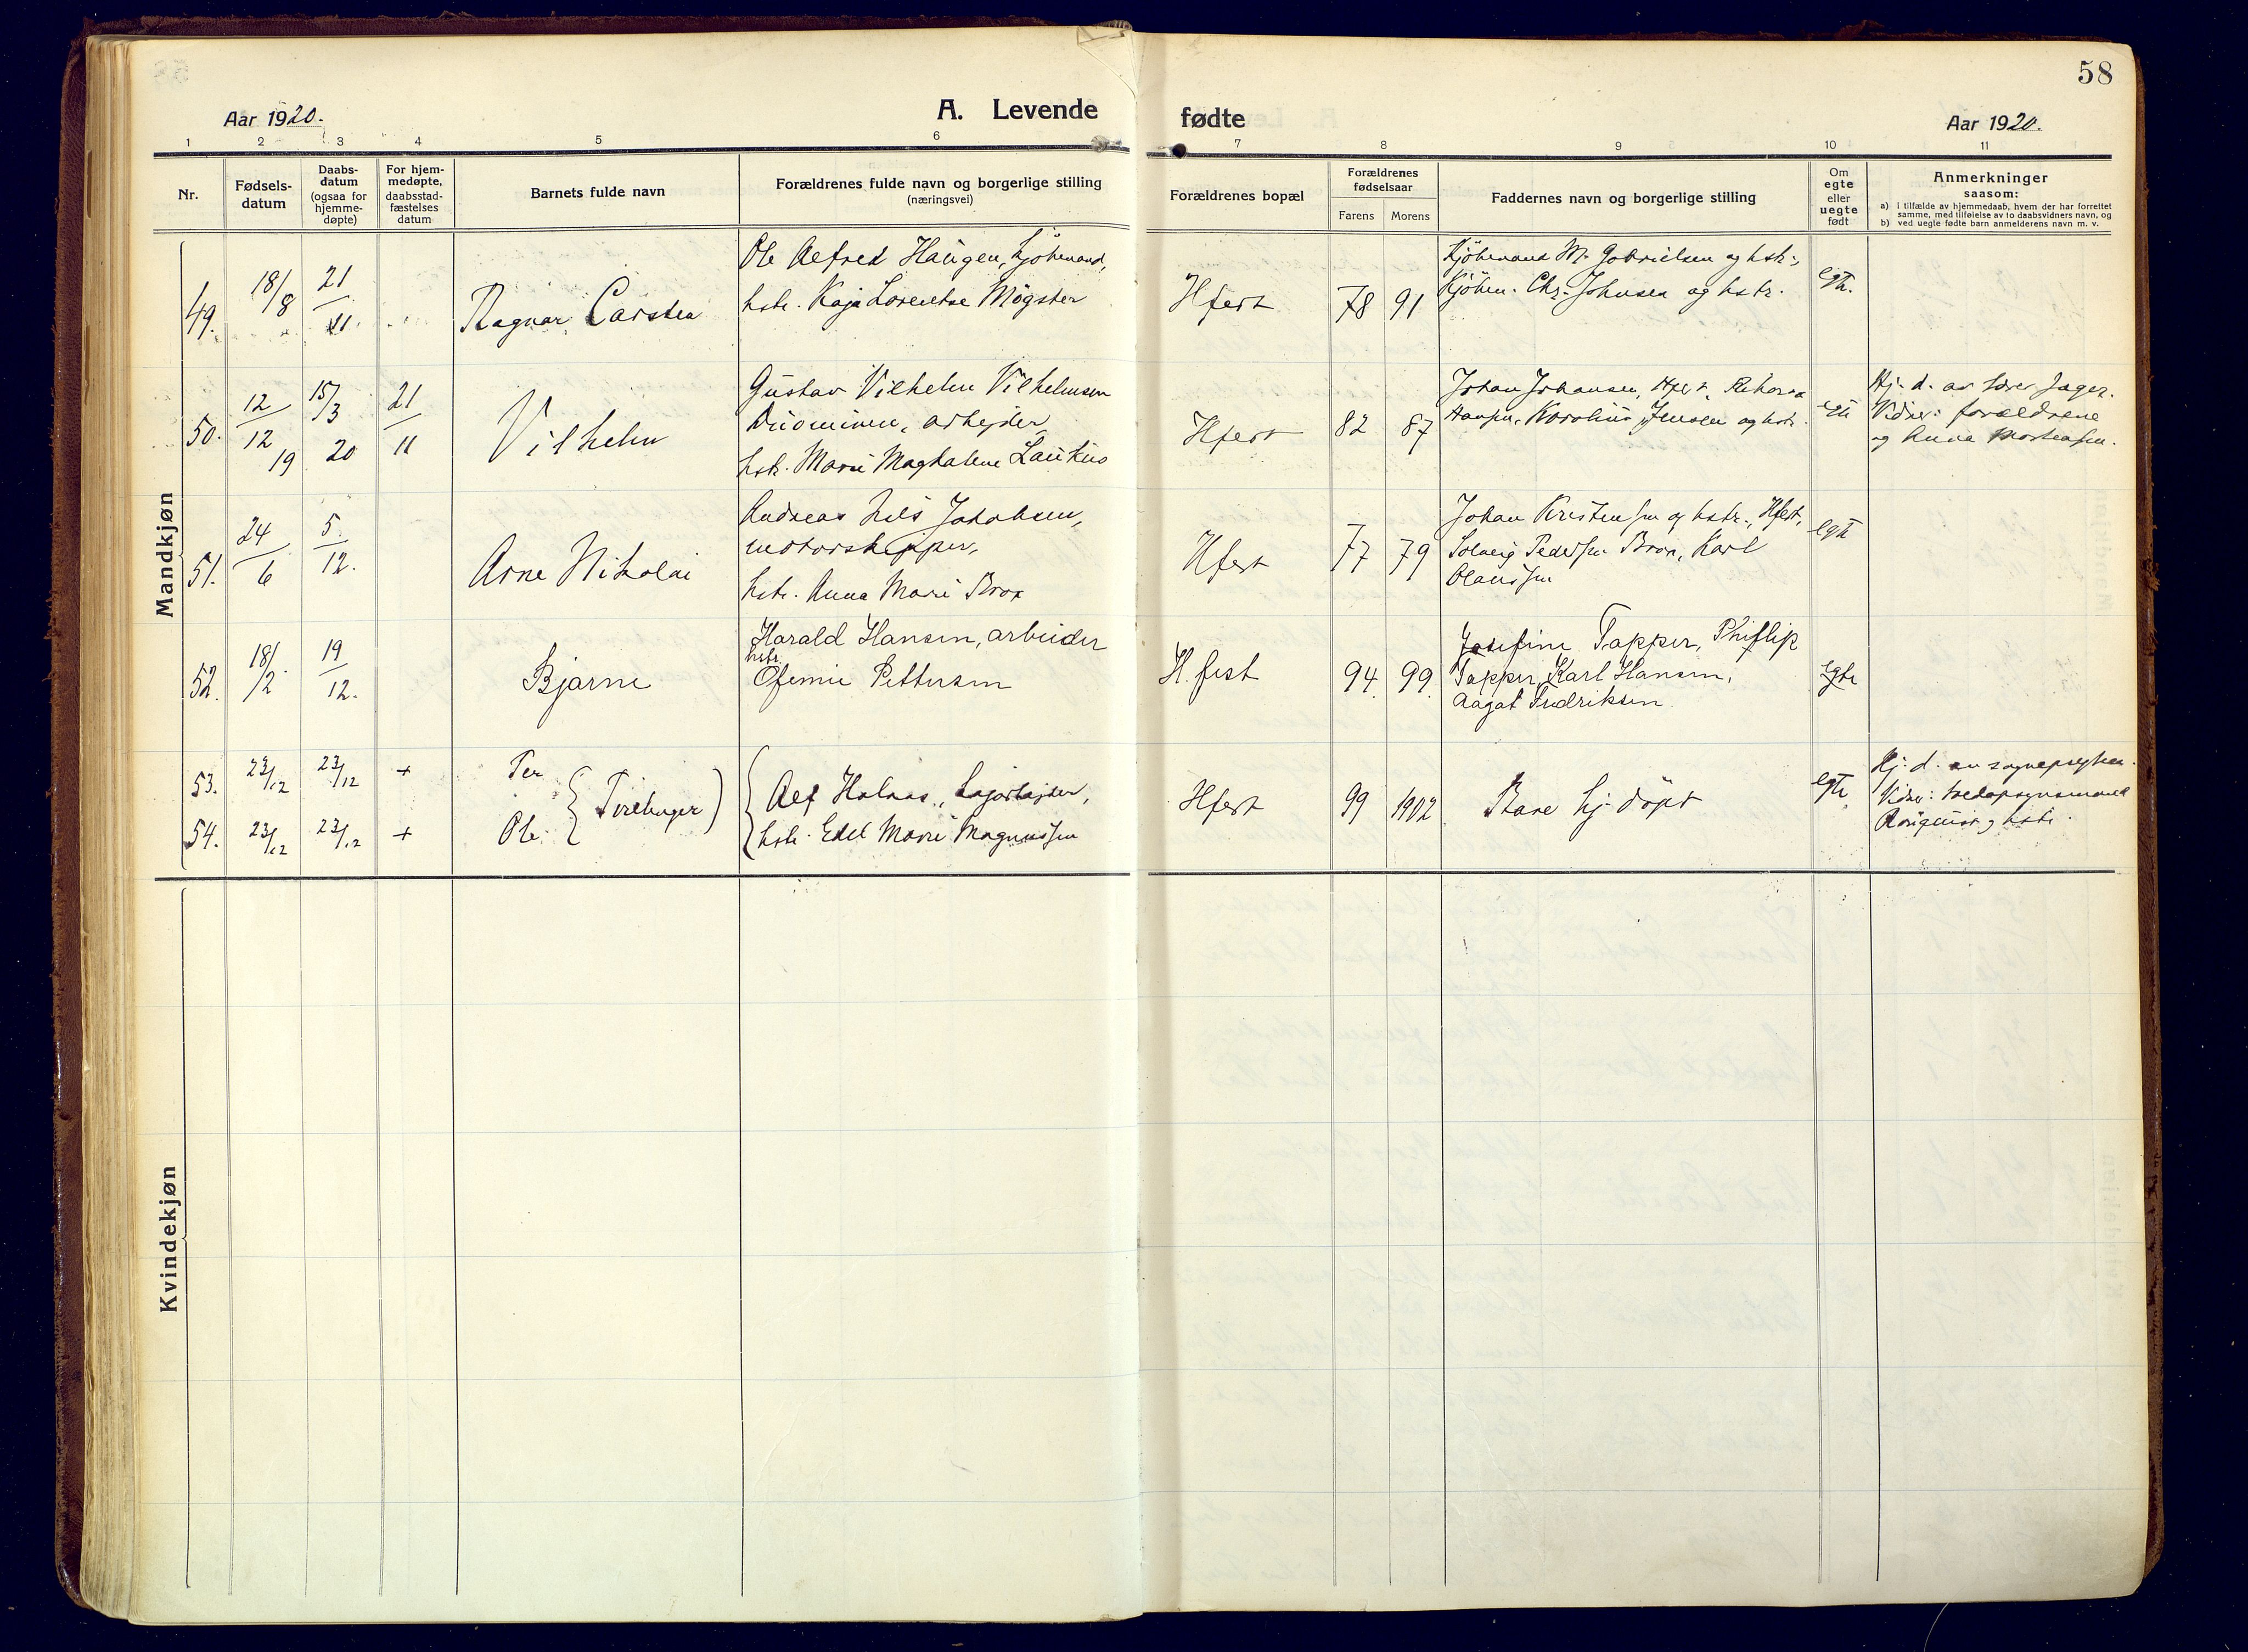 58
Aar 1920.
A. Levende
fødte
Aar 1920.
1 2 3 4 5 6 7 8 9 10 11
Nr.
Fødsels-
datum
Daabs-
datum
(ogsaa for
hjemme-
døpte)
For hjem-
medøpte,
daabsstad-
fæstelses
datum
Barnets fulde navn
Forældrenes fulde navn og borgerlige stilling
(næringsvei)
Forældrenes bopæl
Forældrenes
fødselsaar
Farens
Morens
Faddernes navn og borgerlige stilling
Om
egte
eller
uegte
født
Anmerkninger
saasom:
a) i tilfælde av hjemmedaab, hvem der har forrettet
samme, med tilføielse av to daabsvidners navn, og
b) ved uegte fødte barn anmelderens navn m. v.
Mandkjøn
49.
18/8
21/11
Ragnar Carsten
Ole Alfred Haugen, kjöbmand,
hstr. Kaja Lorentse Mögster
Hfest
78
91
Kjöbmand M. Gabrielsen og hstr.,
Kjöbm. Chr. Johnsen og hstr.
egte.
50.
12/12 19
15/3 20
21/11
Vilhelm
Gustav Vilhelm Vilhelmsen
arbejder
hstr. Marie Magdalene
Hfest
82
87
Johan Johansen, Hfest, Rikard
Hansen, Karolius Jensen og hstr.
egte
Hj. d. av lærer Jager.
Vidner: forældrene
og Anna Mortensen.
51.
24/6
5/12.
Arne Nikolai
Andreas Nils Jakobsen,
motorskipper,
hstr. Anna Marie Brox
Hfest
77
79
Johan Kristensen og hstr., Hfest,
Solveig Pedersen Brox, Karl
Olaussen
egte
52.
18/2
19/12.
Bjarne
Harald Hansen, arbeider
hstr.
Ofemie Pettersen
H.fest
94.
99.
Josefine Tapper, Phillip
Tapper, Karl Hansen,
Aagot Fredriksen.
egte
53.
23/12
23/12
+
Per
54.
23/12
23/12
+
Ole
Tvillinger
Alf Holaas,
hstr. Edel Marie Magnussen
Hfest
99
1902
Bare hj. döpt
egte
Hj. d. av sognepresten.
Vidner:
og hstr.
Kvindekjøn